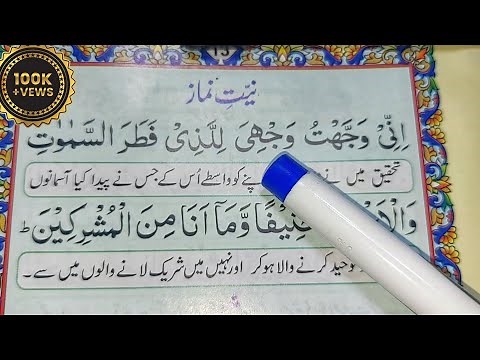 100K
+VEWS
13
نیّتِ نماز
اِنِّیْ وَجَّهْتُ وَجْهِیَ لِلَّذِیْ فَطَرَ السَّمٰوٰتِ
تحقیق میں نے پنے کو واسطے اُس کے جس نے پیدا کیا آسمانوں
وَالْاَ نِیْفًا وَّمَاۤ اَنَا مِنَ الْمُشْرِكِیْنَ ط
توحید کرنے والا ہو کر اور نہیں میں شریک لانے والوں میں سے ۔